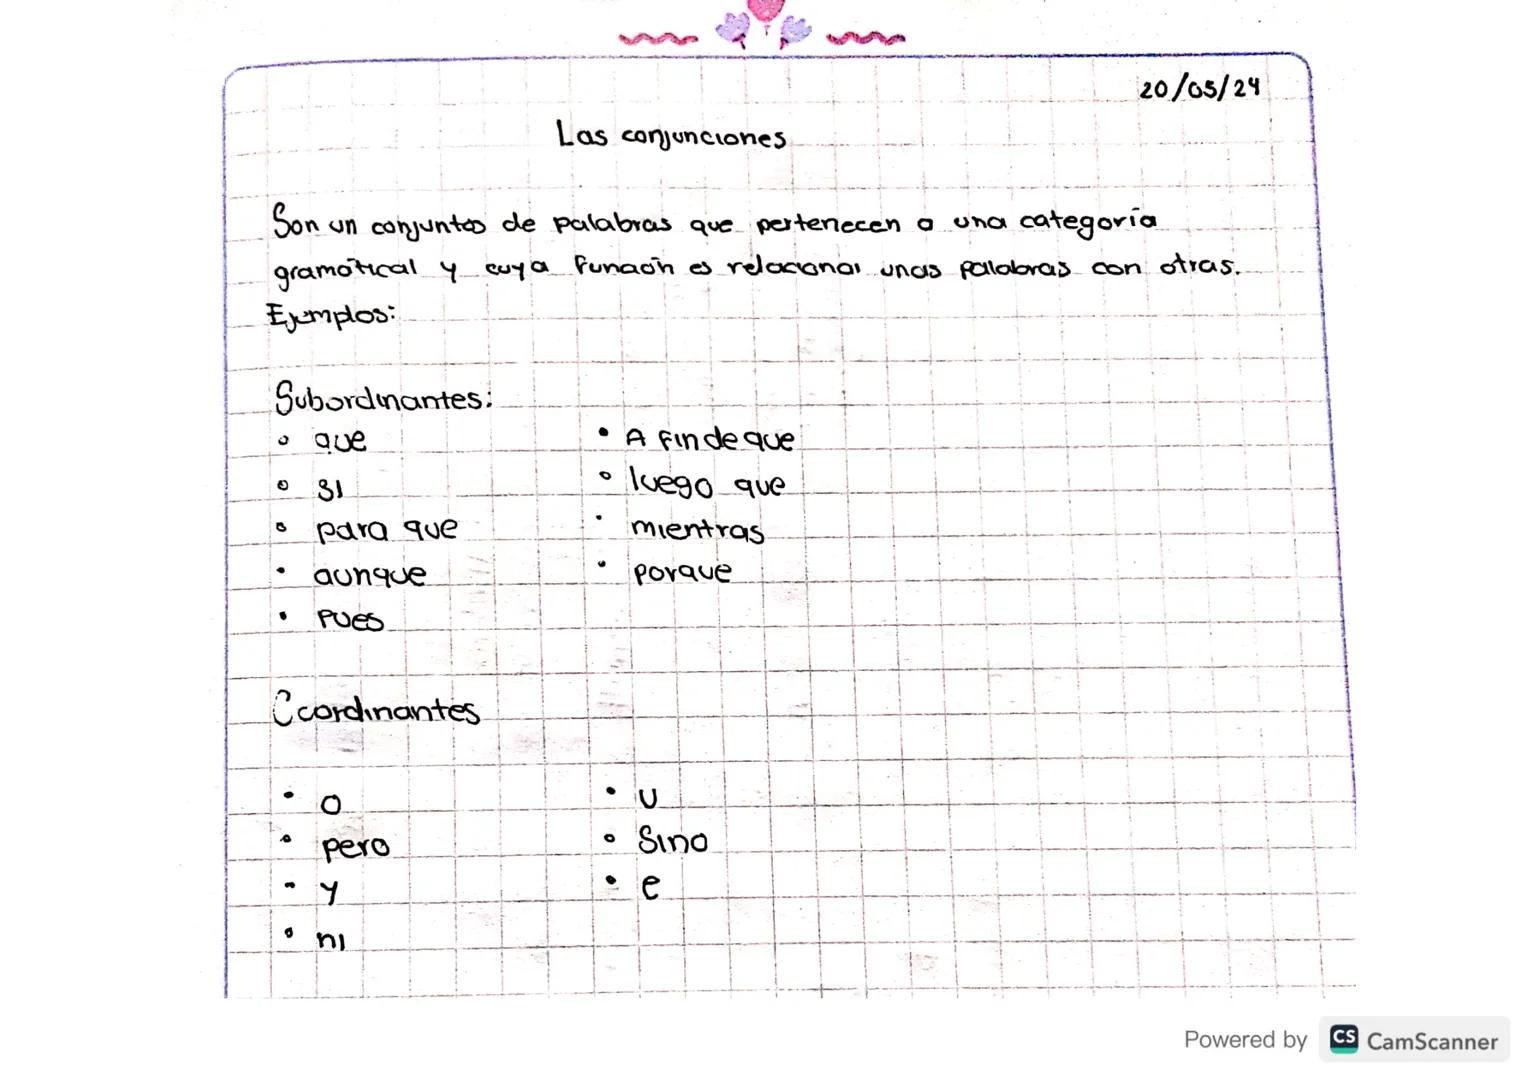 20/05/24
Las conjunciones
Son un conjuntos de palabras que pertenecen a una categoría
gramatical y cuya función es relacionar unas palabras con otras.
Ejemplos:
Subordinantes:
• que
• si
• para que
• aunque
• pues
• A fin de que
• luego que
• mientras
• porque
Coordinantes
• o
• pero
• y
• ni
• u
• Sino
• e
Powered by CS CamScanner